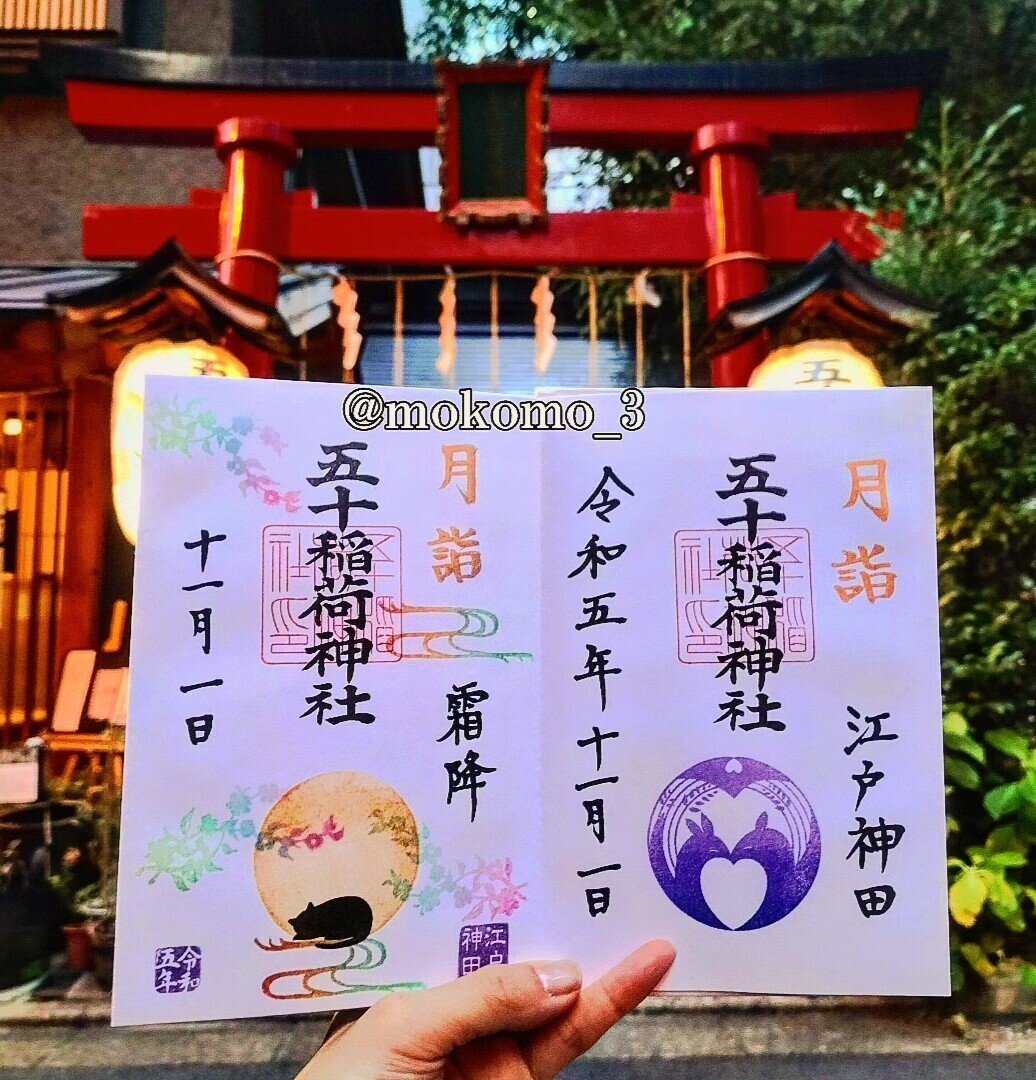 五
五
@mokomo_3
月詣
江戸神田
五十稲荷神社
令和五年十一月一日
月詣
霜降
五十稲荷神社
十一月一日
江戸神田
令和五年